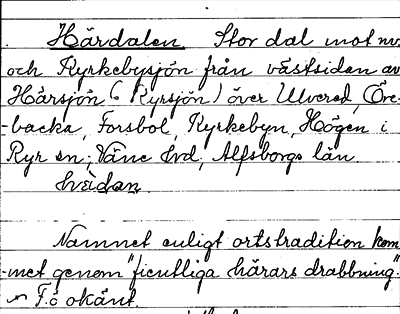 Härdalen Stor dal mot nv.
och Kyrkebysjön från västsidan av
Härsjön (Ryrsjön) över Ulvered, Öre-
-backa, Forsbol, Kyrkebyn, Högen i
Ryr sn; Väne hd, Älfsborgs län.
hei`dan.
Namnet enligt ortstradition kom
-met genom "fientliga härars drabbning".
F.ö okänt.